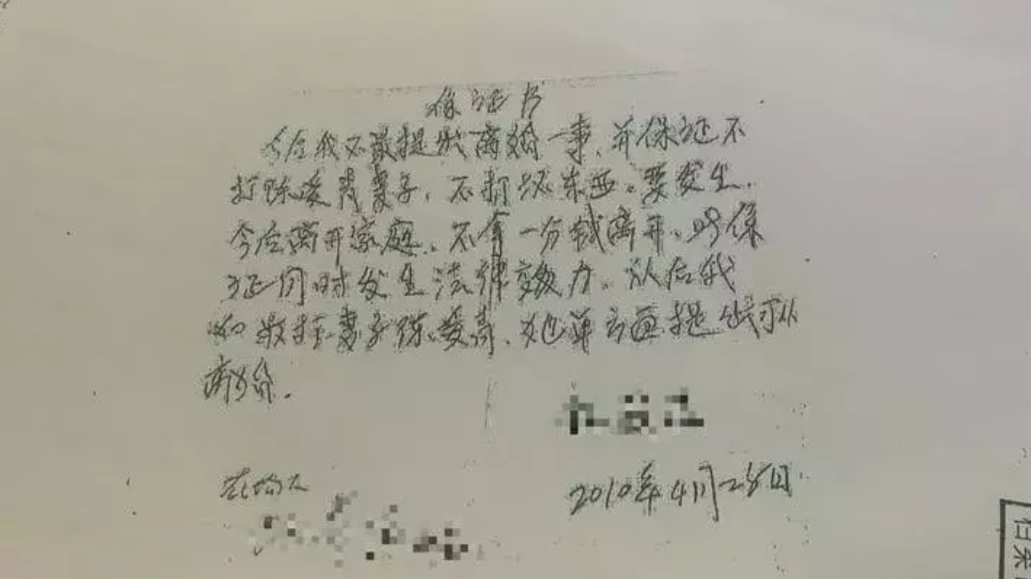 保证书
今后我不最提出离婚一事、并保证不
打陈爱青妻子，不打坏东西。要发生
今后离开家庭、不拿一分钱离开。此保
证同时发生法律效力。从后我
如妻子陈爱青、她单方面提出可以
离婚。
在场人
2010年4月28日
归案